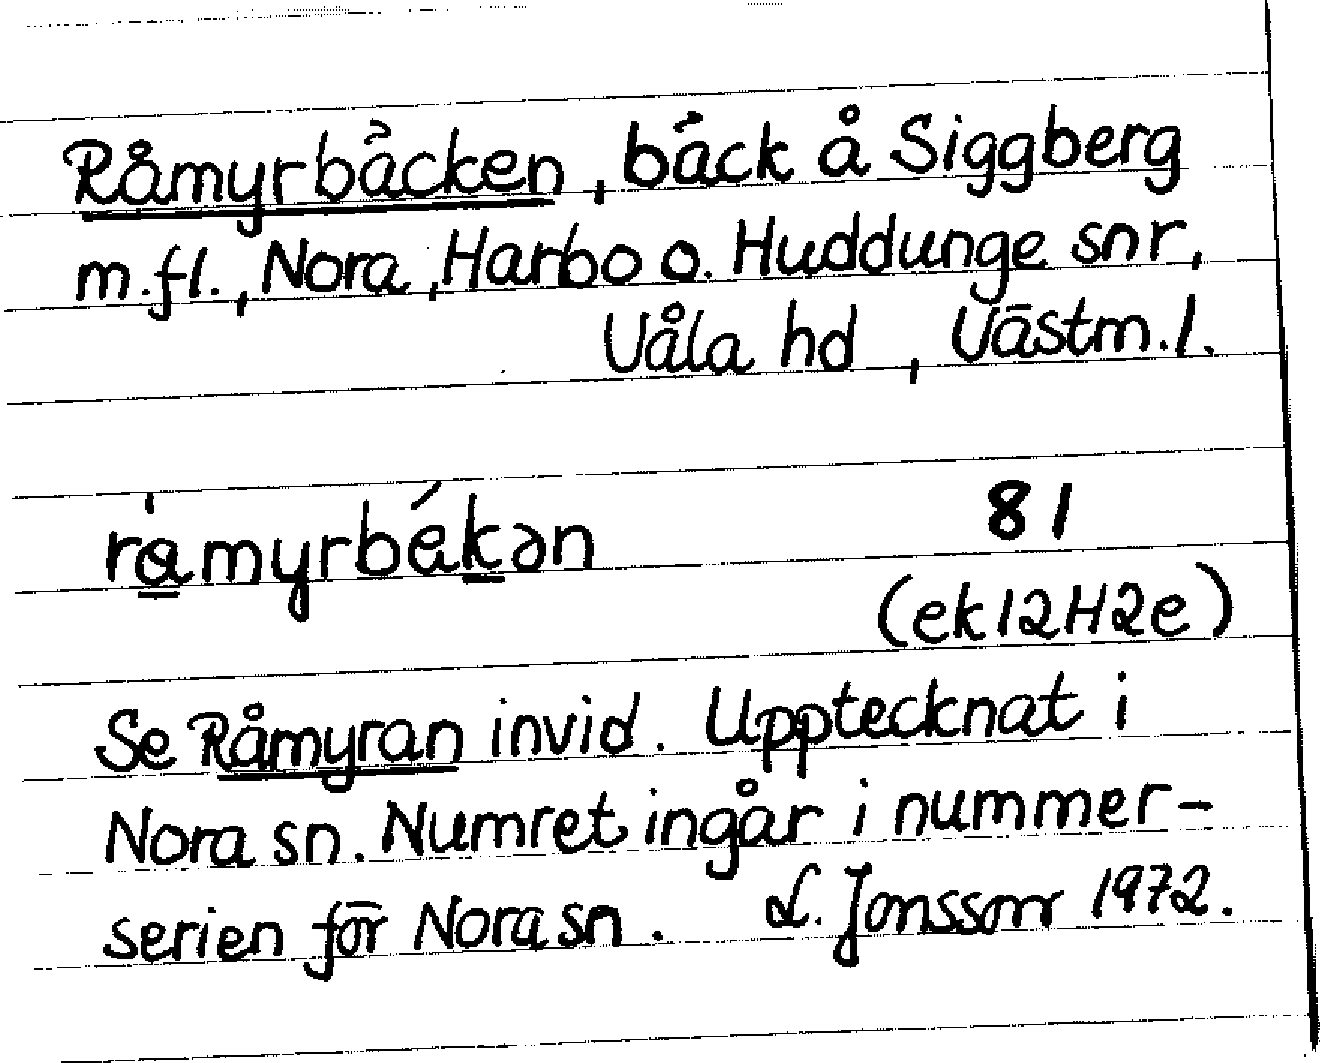 Råmyrbäcken, bäck å Siggberg
m.fl., Nora, Harbo o. Huddunge snr,
Våla hd, Västm.l.
råmyrbékən 81
(ek 12H2e)
Se Råmyran invid. Upptecknat i
Nora sn. Numret ingår i nummer-
serien för Nora sn. L. Jonsson 1972.